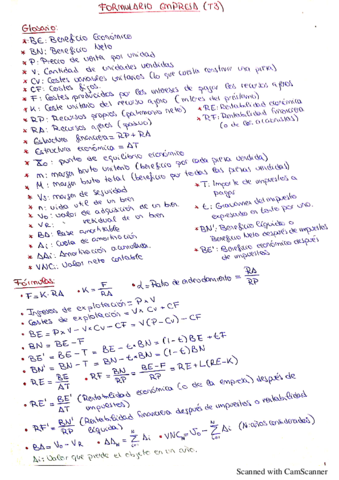 FORMULARIO EMPRESA (T3)
Glosario:
* BE: Beneficio Económico
* BN: Beneficio Neto
* P: Precio de venta por unidad
* V: Cantidad de unidades vendidas
* CV: Costes variables unitarios (lo que cuesta construir una pieza)
* CF: Costes fijos.
* F: Costes producidos por los intereses de pagar los recursos ajenos
* K: Coste unitario del recurso ajeno (interés del préstamo)
* RP: Recursos propios (patrimonio neto)
* RE: Rentabilidad económica
* RA: Recursos ajenos (pasivo)
* RF: Rentabilidad financiera (o de los accionistas)
* Estructura financiera = RP + RA
* Estructura económica = AT
* Xo: punto de equilibrio económico
* m: margen bruto unitario (beneficio por cada pieza vendida)
* M: Margen bruto total (beneficio por todas las piezas vendidas)
* Vs: margen de seguridad
* T: Importe de impuestos a pagar
* n: vida útil de un bien
* Vo: valor de adquisición de un bien
* t: Gravamen del impuesto expresado en tanto por uno.
* VR: " residual de un bien
* BA: Base amortizable
* BN': Beneficio líquido o Beneficio Neto después de impuestos
* Ai: Cuota de amortización
* ΔAi: Amortización acumulada.
* BE': Beneficio económico después de impuestos
* VNC: Valor neto contable
Fórmulas:
• F = K · RA • K = F/RA • L = Ratio de endeudamiento = RA/RP
• Ingresos de explotación = P x V
• Costes de explotación = V x Cv + CF
• BE = P x V - V x Cv - CF = V(P - Cv) - CF
• BN = BE - F
• BE' = BE - T = BE - t · BN = (1-t) BE + tF
• BN' = BN - T = BN - t · BN = (1-t) BN
• RE = BE/AT • RF = BN/RP = BE - F/RP = RE + L(RE - K)
• RE' = BE'/AT (Rentabilidad económica (o de la empresa) después de impuestos)
• RF' = BN'/RP (Rentabilidad financiera después de impuestos o rentabilidad líquida)
• BA = Vo - VR • ΔAN = N∑i=1 Ai • VNCN = Vo - N∑i=1 Ai (N: años considerados)
Ai: Valor que pierde el objeto en un año.
1
Scanned with CamScanner